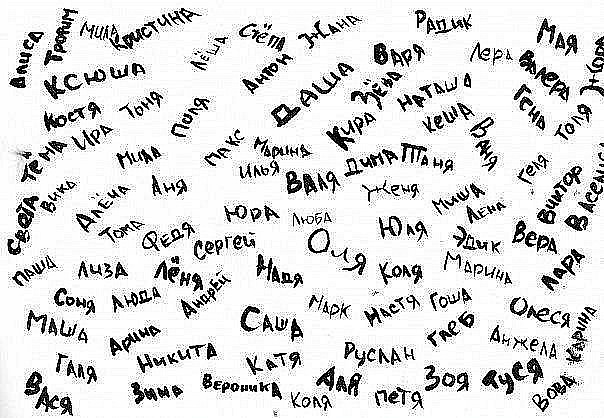 Алиса
Трофим
Мила
Кристина
Лёша
Стёпа
Жанна
Радик
Лера
Мая
Ксюша
Антон
Варя
Валера
Даша
Зёва
Наташа
Гена
Толя
Костя
Тоня
Поля
Кира
Кеша
Ваня
Тёма
Ира
Мила
Макс
Марина
Илья
Дима
Таня
Геля
Виктор
Василиса
Света
Вика
Алёна
Аня
Валя
Женя
Миша
Лена
Тома
Федя
Юра
Люба
Юля
Эдик
Вера
Сергей
Оля
Паша
Лиза
Лёня
Надя
Коля
Марина
Лара
Соня
Люда
Андрей
Марк
Настя
Гоша
Олеся
Маша
Арина
Саша
Глеб
Анжела
Карина
Галя
Никита
Катя
Руслан
Вася
Зина
Вероника
Коля
Аля
Петя
Зоя
Дуся
Вова